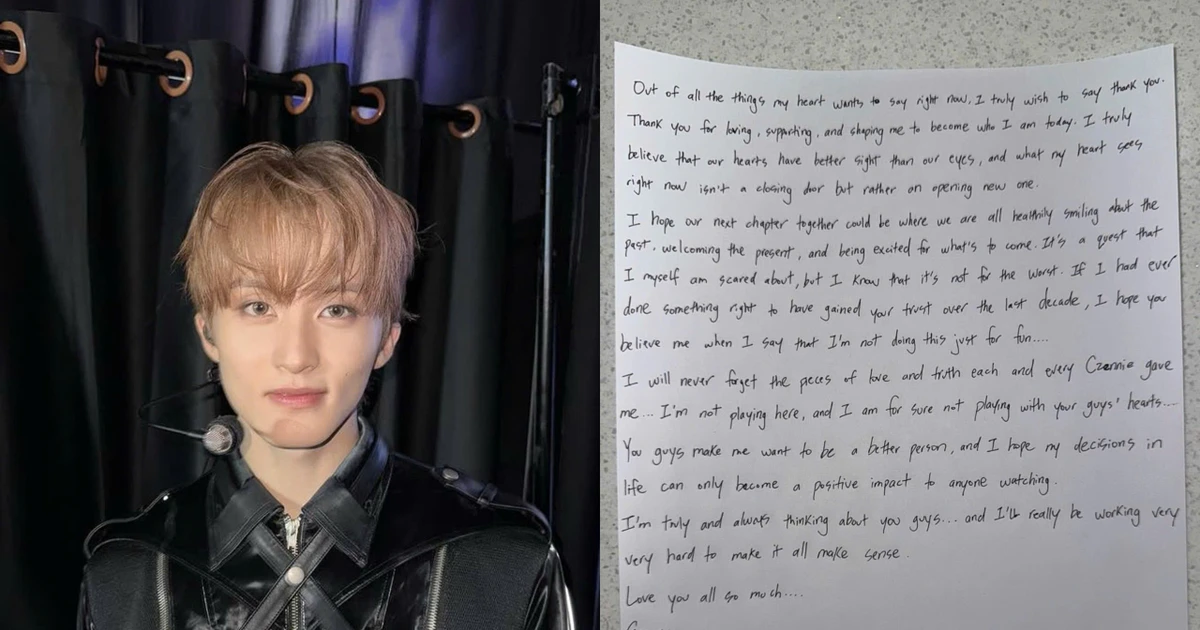 Out of all the things my heart wants to say right now, I truly wish to say thank you.
Thank you for loving, supporting, and shaping me to become who I am today. I truly
believe that our hearts have better sight than our eyes, and what my heart sees
right now isn't a closing door but rather an opening new one.
I hope our next chapter together could be where we are all healthily smiling about the
past, welcoming the present, and being excited for what's to come. It's a quest that
I myself am scared about, but I know that it's not for the worst. If I had ever
done something right to have gained your trust over the last decade, I hope you
believe me when I say that I'm not doing this just for fun....
I will never forget the peces of love and truth each and every Czennie gave
me... I'm not playing here, and I am for sure not playing with your guys' hearts....
You guys make me want to be a better person, and I hope my decisions in
life can only become a positive impact to anyone watching.
I'm truly and always thinking about you guys... and I'll really be working very
very hard to make it all make sense.
Love you all so much....